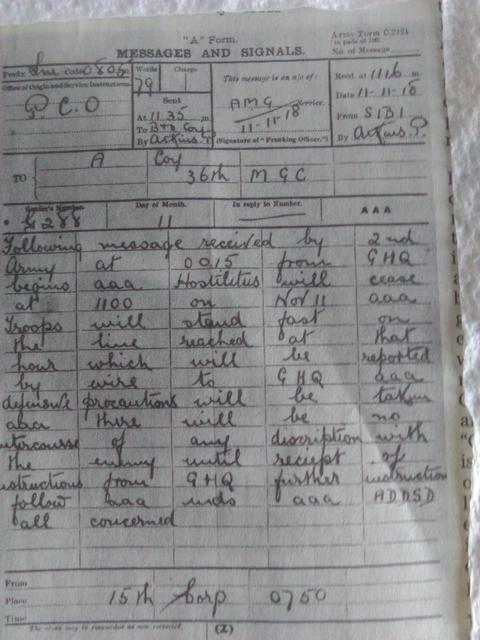 "A" Form.
MESSAGES AND SIGNALS.
Army Form C.2121
(in pads of 100).
No. of Message
Prefix Code 0805
Words Charge
79
Office of Origin and Service Instructions.
P.C.O
Sent
At 1135 m.
To B+D Coy
By Atkins.P
This message is on a/c of:
AMG Service.
11-11-18
(Signature of "Franking Officer.")
Recd. at 1116 m.
Date 11-11-18
From SIBI
By Atkins.P.
TO A Coy
36th MGC
Sender's Number. Day of Month. In reply to Number. AAA
G288 11
Following message received by 2nd
Army at 0015 from GHQ
begins aaa Hostilities will cease
at 1100 on Nov 11 aaa
Troops will stand fast on
the line reached at that
hour which will be reported
by wire to GHQ aaa
defensive precautions will be taken
aaa there will be no
ntercourse of any discription with
the enemy until reciept of
nstructions from GHQ further instruction
follow aaa ends aaa ADDSD
all concerned
From
Place 15th Corp 0750
Time
The above may be forwarded as now corrected. (Z)